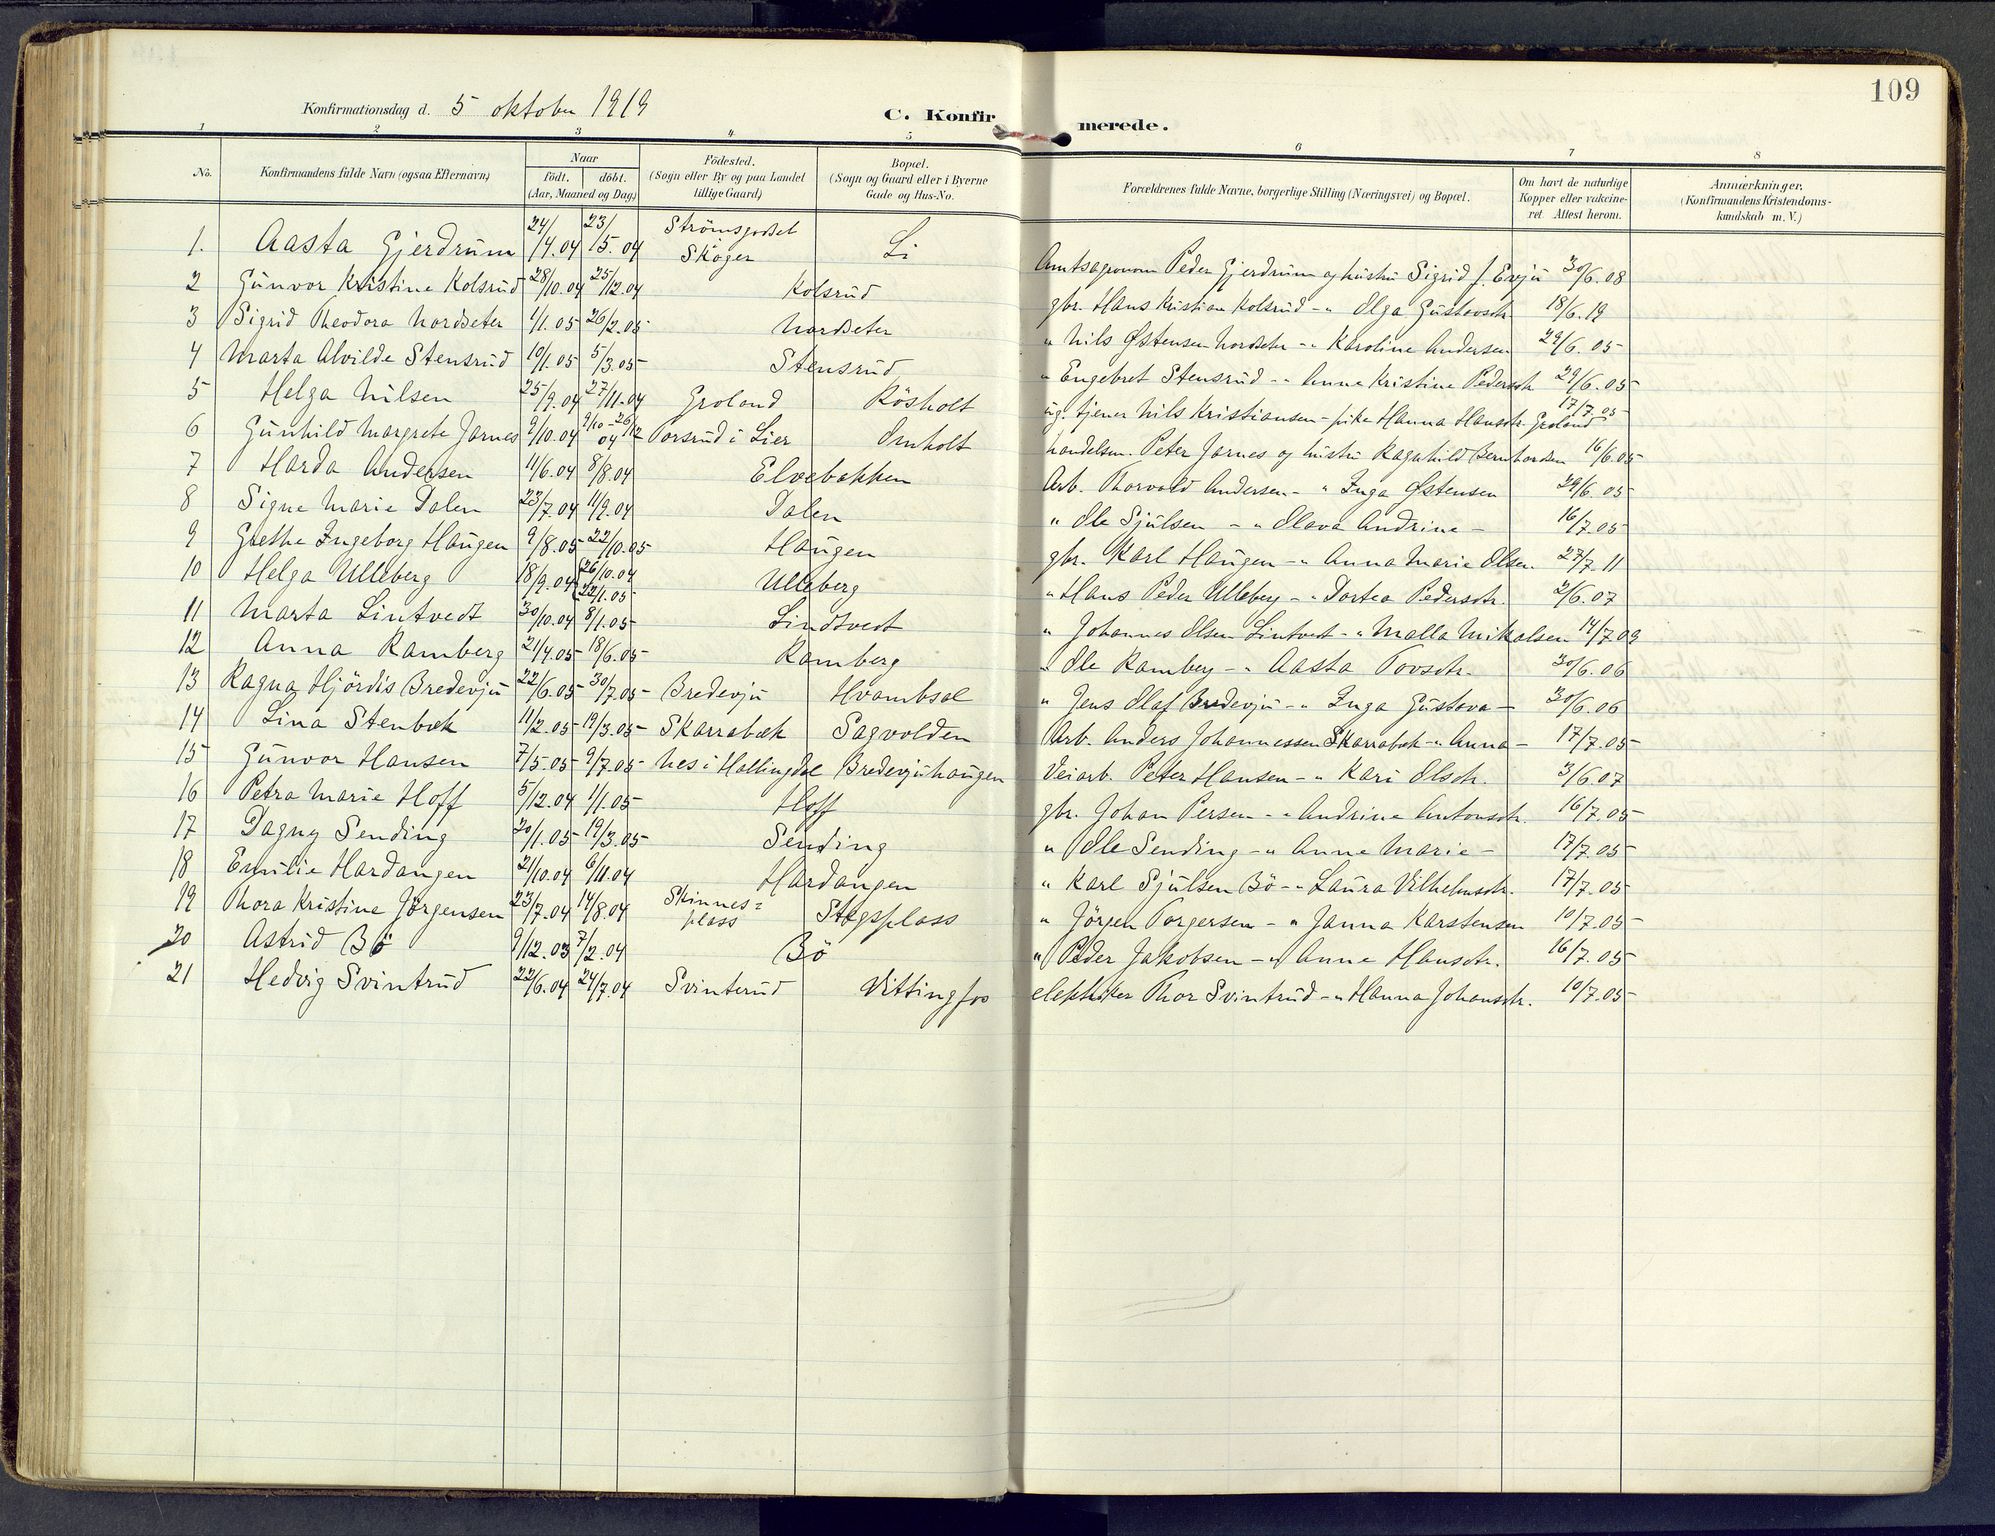 109
Konfirmationsdag d. 5 oktober 1919
C. Konfirmerede.
1 2 3 4 5 6 7 8
No. Konfirmandens fulde Navn (ogsaa Efternavn) Naar födt. döbt. (Aar, Maaned og Dag) Födested. (Sogn eller By og paa Landet tillige Gaard) Bopæl. (Sogn og Gaard eller i Byerne Gade og Hus-No. Forældrenes fulde Navne, borgerlige Stilling (Næringsvei) og Bopæl. Om havt de naturlige Kopper eller vakcineret Attest herom. Anmærkninger. (Konfirmandens Kristendomskundskab m. V.)
1. Aasta Gjerdrum 24/4.04 23/5.04 Strömsgodset Skoger Li Amtsagronom Peder Gjerdrum og hustru Sigrid f. Evju 30/6.08
2 Gunvor Kristine Kolsrud 28/10.04 25/12.04 Kolsrud gbr. Hans Kristian Kolsrud - " Olga Gustavsdtr. 18/6.19
3 Sigrid Theodora Nordseter 1/1.05 26/2.05 Nordseter " Nils Østensen Nordseter - " Karoline Andersen 29/6.05
4 Marta Alvilde Stensrud 10/1.05 5/3.05 Stensrud " Engebret Stensrud - " Anne Kristine Pedersdtr 29/6.05
5 Helga Nilsen 25/9.04 27/11.04 Groland Rösholt ug. tjener Nils Kristiansen - pike Hanna Hansdtr. Groland 17/7.05
6 Gunhild Margrete Jarnes 9/10.04 9/10-26/12 04 Porsrud i Lier Omholt handelsm. Peter Jarnes og hustru Ragnhild Bernhardsen 16/6.05
7 Harda Andersen 11/6.04 8/8.04 Elvebakken Arb. Thorvald Andersen - " Inga Østensen 29/6.05
8 Signe Marie Dalen 23/7.04 11/9.04 Dalen " Ole Sjulsen - " Olava Andrine - 16/7.05
9 Grethe Ingeborg Haugen 9/8.05 22/10.05 Haugen gbr. Karl Haugen - " Anna Marie Olsen 27/7.11
10 Helga Ulleberg 18/9.04 26/10.04 22/1.05 Ulleberg " Hans Peder Ulleberg - " Dortea Pedersdtr. 2/6.07
11 Marta Lintvedt 30/10.04 8/1.05 Lindtvedt " Johannes Olsen Lintvedt - " Malla Mikalsen 14/7.09
12 Anna Ramberg 21/4.05 18/6.05 Ramberg " Ole Ramberg - " Aasta Tovsdtr. 30/6.06
13 Ragna Hjördis Bredevju 22/6.05 30/7.05 Bredevju Hvambsal " Jens Olaf Bredevju - " Inga Gustava - 30/6.06
14 Lina Stenbæk 11/2.05 19/3.05 Skarrabæk Sagvolden Arb. Anders Johannessen Skarrabæk - " Anna - 17/7.05
15 Gunvor Hansen 7/5.05 9/7.05 Nes i Hallingdal Bredevjuhaugen Veiarb. Peter Hansen - " Kari Olsdtr. 3/6.07
16 Petra Marie Hoff 5/12.04 1/1.05 Hoff gbr. Johan Persen - " Andrine Antonsdtr. 16/7.05
17 Dagny Sending 30/1.05 19/3.05 Sending " Ole Sending - " Anne Marie - 17/7.05
18 Emilie Hardangen 21/10.04 6/11.04 Hardangen " Karl Sjulsen Bö - " Laura Vilhelmsdtr. 17/7.05
19 Thora Kristina Jörgensen 23/7.04 14/8.04 Skinnes=plass Stegsplass " Jörgen Torgersen - " Janna Karstensen 10/7.05
20 Astrid Bö 9/12.03 7/2.04 Bö " Peder Jakobsen - " Anne Hansdtr. 16/7.05
21 Hedvig Svintrud 22/6.04 24/7.04 Svinterud Vittingfos elektriker Thor Svintrud - " Hanna Johansdtr. 10/7.05